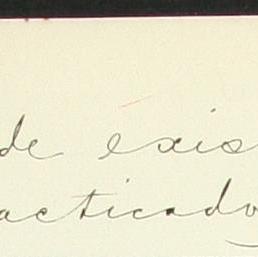 de éxis
acticado